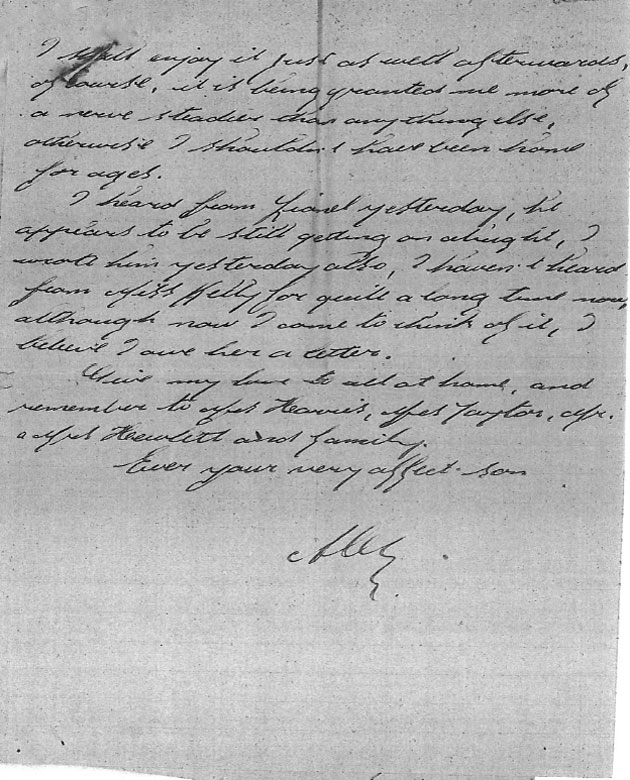 I shall enjoy it just as well afterwards,
of course, it is being granted me more of
a nerve steadier than anything else,
otherwise I shouldn't have been home
for ages.
I heard from Lionel yesterday, he
appears to be still getting on alright, I
wrote him yesterday also, I haven't heard
from Miss Kelly for quite a long time now,
although now I come to think of it, I
believe I owe her a letter.
Give my love to all at home, and
remember to Mrs Harris, Mrs Taylor, Mr.
& Mrs Hewlett and family.
Ever your very affect. son